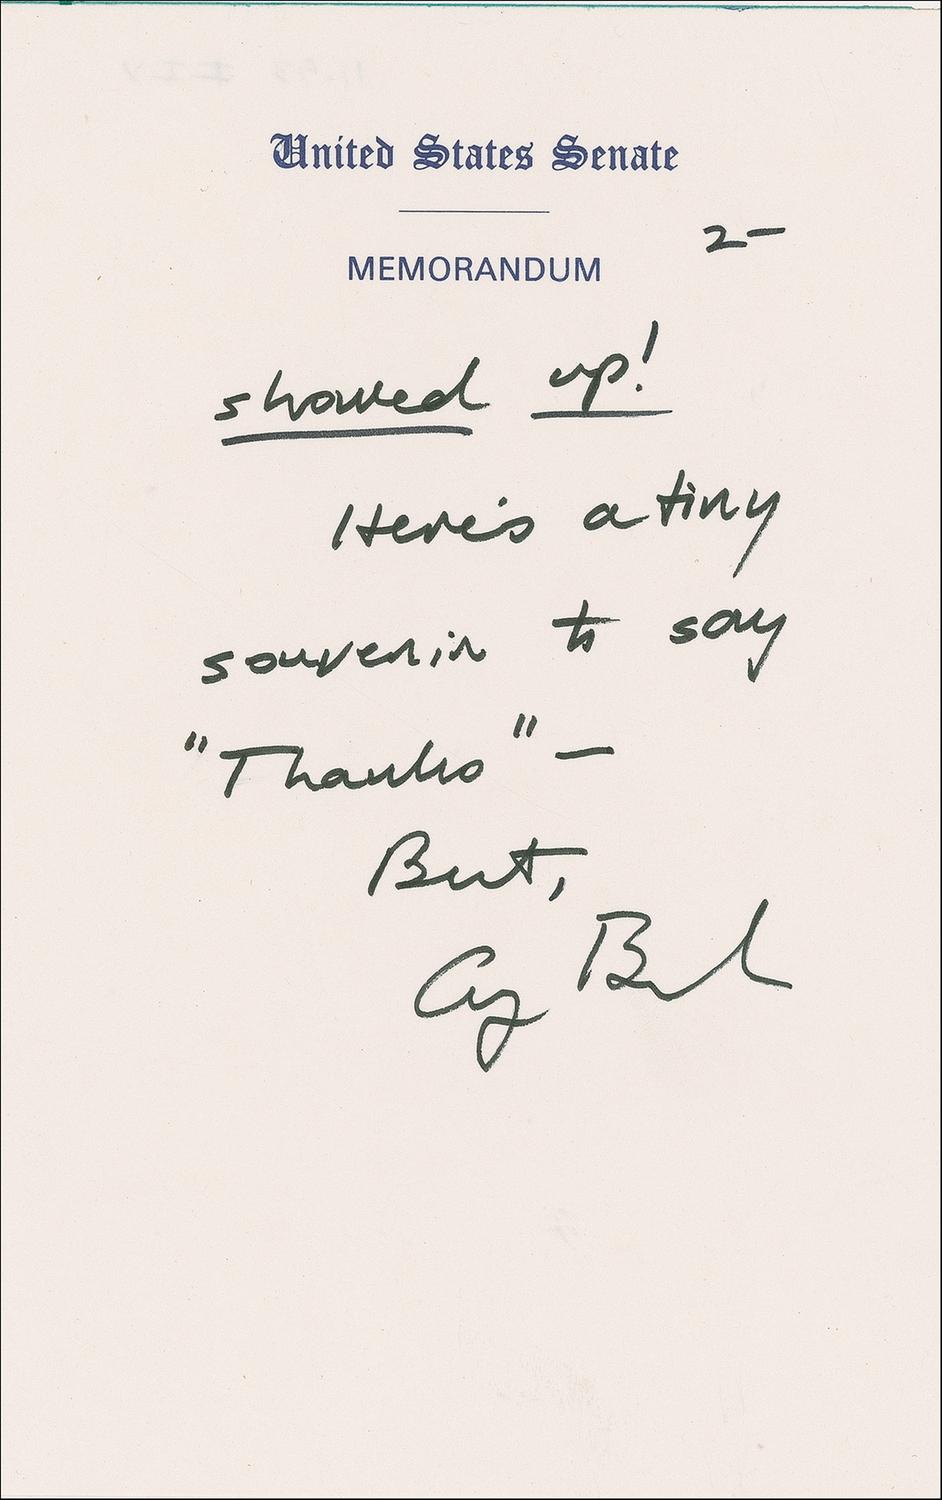 United States Senate
2-
MEMORANDUM
showed up!
Here's a tiny
souvenir to say
"Thanks" -
Best,